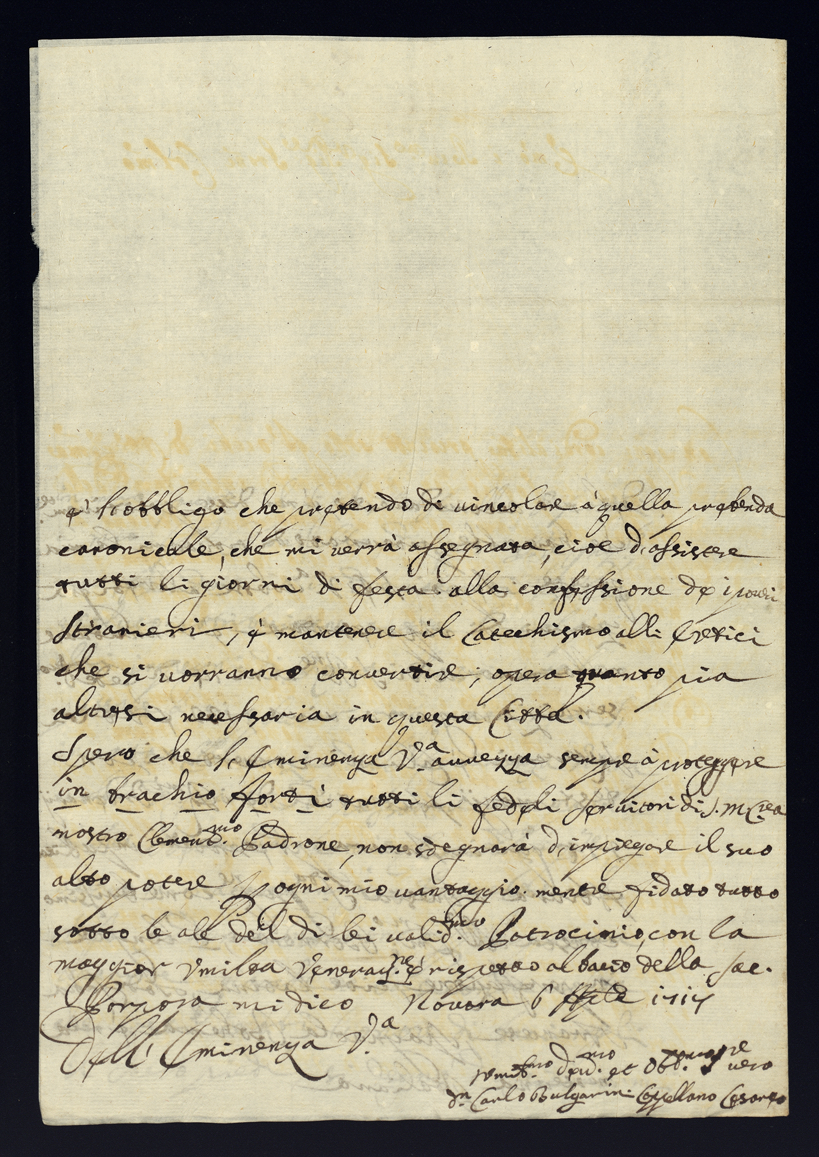 e' l'obbligo che pretendo di vincolare à quella prebenda
canonicale, che mi verrà assegnata, cioè d'assistere
tutti li giorni di festa alla confessione de i poveri
stranieri, e mantenere il Catechismo alli Eretici
che si vorranno convertire, opera quanto pia
altresi necessaria in questa Città.
Spero che l'Eminenza V.a avvezza sempre à proteggere
in brachio forti tutti li fedeli servitori di S. M. Crea
nostro Clement.mo Padrone, non sdegnarà d'impiegare il suo
alto potere p ogni mio vantaggio. mentre fidato tutto
sotto le ale del di lei valid.mo Patrocinio, con la
maggior umiltà venerat.ne e rispetto al bacio della Sac.
Porpora mi dico Novara 6 Aple 1717
Dell' Eminenza V.a
Umil.mo Dev.mo et Obb.mo vero
Dn Carlo Bulgarini Cappellano Cesareo